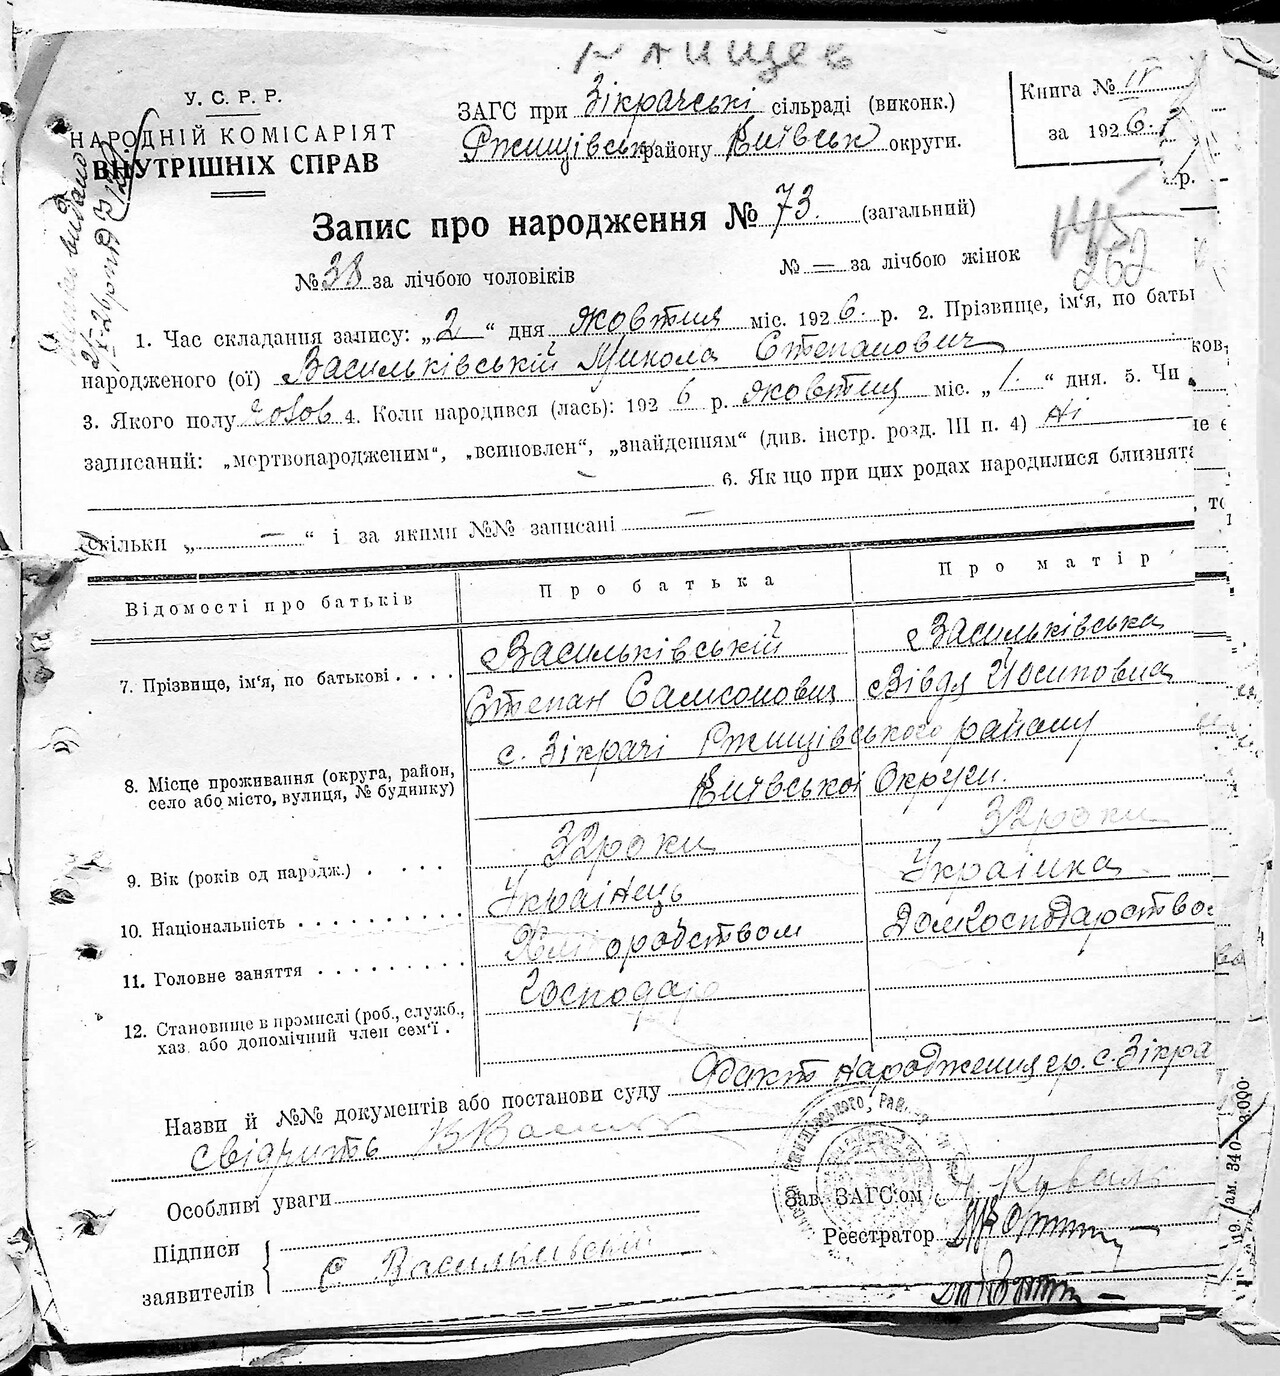 У. С. Р. Р.
НАРОДНІЙ КОМІСАРІЯТ
ВНУТРІШНІХ СПРАВ
ЗАГС при Зікрачські сільраді (виконк.)
Ржищівськ району Київськ округи.
Книга № IV
за 1926 р.
Запис про народження № 73. (загальний)
№ 38 за лічбою чоловіків
№ — за лічбою жінок
262
1. Час складання запису: „2“ дня жовтня міс. 1926. р. 2. Прізвище, ім'я, по батьков-
народженого (ої) Васильківський Микола Степанович
3. Якого полу чолов 4. Коли народився (лась): 1926 р. жовтня міс. „1.“ дня. 5. Чи не є
записаний: „мертвонародженим“, „всиновлен“, „знайденням“ (див. інстр. розд. III п. 4) Ні
6. Як що при цих родах народилися близнята, то
скільки „—“ і за якими №№ записані —
Відомості про батьків
Про батька
Про матір
7. Прізвище, ім'я, по батькові . . . .
Васильківський
Степан Самсонович
Васильківська
Вівдя Йосиповна
8. Місце проживання (округа, район,
село або місто, вулиця, № будинку)
с. Зікрачі Ржищівського району
Київської Округи.
9. Вік (років од народж.) . . . .
32 роки
32 роки
10. Національність . . . . . . . . .
Українець
Українка
11. Головне заняття . . . . . . . . .
Хліборобством
Домгосподарство
12. Становище в промислі (роб., служб.,
хаз. або допомічний член сем'ї .
Господарь
Назви й №№ документів або постанови суду Факт народження гр. с. Зікра
свідчить
Особливі уваги
Зав. ЗАГС'ом Коваль
Підписи
заявителів
С Васильківській
Реєстратор